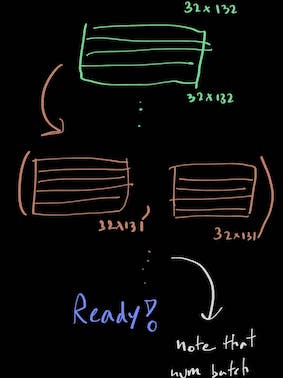 32x132
32x132
32x131, 32x131
Ready!
note that
num batch